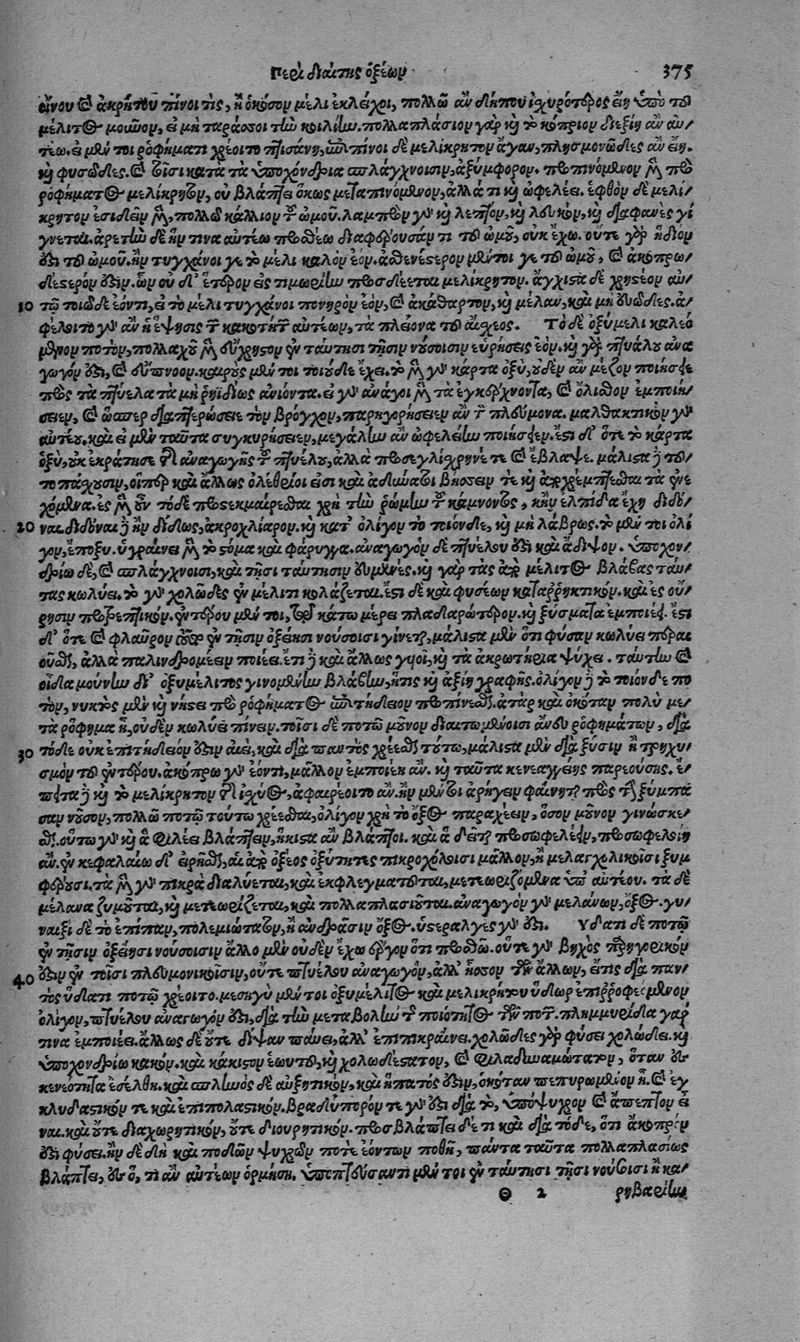 Περὶ διαίτης ὀξέων 375
οἴνου καὶ ἀκρήτου πίνοι τὶς, ἢ ὁκόσον μέλι ἐκλείχοι, πολλῶ ἂν δήπου ἰχυρότερος εἴη ὑπὸ τοῦ
μέλιτος μοῦνον, εἰ μὴ ταράσσοι τὴν κοιλίην. πολλαπλάσιον γὰρ καὶ τὸ κόπριον διεξίη ἂν αὐ/
τέω. εἰ μὲν τοι ῥοφήματι χρέοιτο πτισάνη, ἐπιπίνοι δὲ μελίκρητον ἄγαν, πλησμονῶδες ἂν εἴη.
καὶ φυσῶδες. καὶ τοῖσι κατὰ τὰ ὑποχόνδρια σπλάγχνοισιν, ἀξύμφορον. προπινόμενον μὲν πρὸ
ῥοφήματος μελίκρητον, οὐ βλάπτει ὅκως μεταπινόμενον, ἀλλά τι καὶ ὠφελέει. ἑφθὸν δὲ μελί/
κρητον ἐσιδεῖν μὲν, πολλῶ κάλλιον τοῦ ὠμοῦ. λαμπρὸν γὰρ καὶ λεπτὸν, καὶ λευκὸν, καὶ διαφανὲς γί
γνεται. ἀρετὴν δὲ ἥν τινα αὐτέω προσθέω διαφέρουσάν τι τοῦ ὠμοῦ, οὐκ ἔχω. οὔτε γὰρ ἥδιον
ἐστι τοῦ ὠμοῦ. ἢν τυγχάνοι γε τὸ μέλι καλὸν ἐόν. ἀσθενέστερον μέντοι γε τοῦ ὠμοῦ, καὶ ἀκοπρω/
δέστερόν ἐστιν. ὧν οὐδ' ἑτέρου ἐς τιμωρίην προσδέεται μελίκρητον. ἄγχιστα δὲ χρηστέον αὐ/
10 τῶ τοιῶδε ἐόντι, εἰ τὸ μέλι τυγχάνοι πονηρὸν ἐὸν, καὶ ἀκάθαρτον, καὶ μέλαν, καὶ μὴ εὐῶδες. ἀ/
φέλοιτο γὰρ ἂν ἡ ἕψησις τῶν κακοτήτων αὐτέων, τὰ πλείονα τοῦ αἴσχεος. Τὸ δὲ ὀξύμελι καλεό
μενον ποτὸν, πολλαχοῦ μὲν εὔχρηστον ἐν ταύτησι τῆσιν νούσοισιν εὑρήσεις ἐόν. καὶ γὰρ πτυάλου ἀνα
γωγόν ἐστι, καὶ εὔπνοον. καιροὺς μέν τοι τοιούσδε ἔχει. τὸ μὲν γὰρ κάρτα ὀξὺ, οὐδὲν ἂν μέζον ποιήσειε
πρὸς τὰ πτύελα τὰ μὴ ῥηϊδίως ἀνιόντα. εἰ γὰρ ἀνάγοι μὲν τὰ ἐγκέρχνοντα, καὶ ὄλισθον ἐμποιή/
σειεν, καὶ ὥσπερ διαπτερώσειε τὸν βρόγχον, παρηγορήσειεν ἂν τὸν πλεύμονα. μαλθακτικὸν γὰρ
αὐτέου. καὶ εἰ μὲν ταῦτα συγκυρήσειεν, μεγάλην ἂν ὠφελείην ποιήσειεν. ἔστι δ' ὅτε τὸ κάρτα
ὀξὺ, οὐκ ἐκράτησε τῆς ἀναγωγῆς τοῦ πτυέλου, ἀλλὰ προσεγλίσχρηνέ τε καὶ ἔβλαψε. μάλιστα δὲ τοῦ/
το πάσχουσιν, οἵπερ καὶ ἄλλως ὀλέθριοί εἰσι καὶ ἀδύνατοι βήσσειν τε καὶ ἀποχρέμπτεσθαι τὰ ἐνε
χόμενα. ἐς μὲν οὖν τόδε προστεκμαίρεσθαι χρὴ τὴν ῥώμην τοῦ κάμνοντος, κἢν ἐλπίδα ἔχη διδό/
20 ναι. διδόναι δὲ ἢν διδῶς, ἀκροχλίαρον. καὶ κατ' ὀλίγον τὸ τοιόνδε, καὶ μὴ λάβρως. τὸ μέν τοι ὀλί
γον, ἔποξυ. ὑγραίνει μὲν τὸ στόμα καὶ φάρυγγα. ἀναγωγὸν δὲ πτυέλου ἐστὶ καὶ ἄδιψον. ὑποχον/
δρίω δὲ, καὶ σπλάγχνοισι, καὶ τῆσι ταύτησιν εὐμενές. καὶ γὰρ τὰς ἀπὸ μέλιτος βλάβας ταύ/
τας κωλύει. τὸ γὰρ χολῶδες ἐν μέλιτι κολάζεται. ἔστι δὲ καὶ φυσέων καταρρηκτικὸν, καὶ ἐς οὔ/
ρησιν προτρεπτικόν. ἐντέρου μέν τοι, τῷ κάτω μέρει πλαδαρώτερον. καὶ ξύσματα ἐμποιέει. ἔστι
δ' ὅτε καὶ φλαῦρον τοῦτο ἐν τῆσιν ὀξείησι νούσοισι γίνεται, μάλιστα μὲν ὅτι φύσαν κωλύει περαι
οῦσθαι, ἀλλὰ παλινδρομέειν ποιέει. ἔτι δὲ καὶ ἄλλως γυιοῖ, καὶ τὰ ἀκρωτήρια ψύχει. ταύτην καὶ
οἶδα μούνην δι' ὀξυμέλιτος γινομένην βλάβην, ἥτις καὶ ἀξίη γραφῆς. ὀλίγον δὲ τὸ τοιόνδε πο
τὸν, νυκτὸς μὲν καὶ νήστει πρὸ ῥοφήματος ἐπιτήδειον προπίνεσθαι. ἀτὰρ καὶ ὁκόταν πολὺ με/
τὰ ῥόφημα ἦ, οὐδὲν κωλύει πίνειν. τοῖσι δὲ ποτῶ μοῦνον διαιτωμένοισι ἄνευ ῥοφημάτων, διὰ
30 τόδε οὐκ ἐπιτήδειόν ἐστιν ἀεὶ, καὶ διὰ παντὸς χρέεσθαι τούτω, μάλιστα μὲν διὰ ξύσιν ἢ τρηχυ/
σμὸν τοῦ ἐντέρου. ἀκόπρω γὰρ ἐόντι, μᾶλλον ἐμποιέει ἂν. καὶ ταῦτα κενεαγγείης παρεούσης. ἔ/
πειτα δὲ καὶ τὸ μελίκρητον τῆς ἰσχύος, ἀφαιρέοιτο ἄν. ἢν μέν τοι ἀρήγειν φαίνηται πρὸς τὴν ξύμπα
σαν νοῦσον, πολλῶ ποτῶ τούτω χρέεσθαι, ὀλίγον χρὴ τὸ ὄξος παραχέειν, ὅσον μοῦνον γινώσκε/
σθαι. οὕτω γὰρ καὶ ἃ φιλέει βλάπτειν, ἥκιστα ἂν βλάπτοι. καὶ ἃ δεῖται προσωφελέειν, προσωφελοίη
ἄν. ἐν κεφαλαίω δ' εἰρῆσθαι, αἱ ἀπὸ ὄξεος ὀξύτητες πικροχόλοισι μᾶλλον, ἢ μελαγχολικοῖσι ξυμ
φέρουσι. τὰ μὲν γὰρ πικρὰ διαλύεται, καὶ ἐκφλεγματοῦται, μετεωριζόμενα ὑπ' αὐτέου. τὰ δὲ
μέλανα ζυμοῦται, καὶ μετεωρίζεται, καὶ πολλαπλασιοῦται. ἀναγωγὸν γὰρ μελάνων, ὄξος. γυ/
ναιξὶ δὲ τὸ ἐπίπαν, πολεμιώτατον, ἢ ἀνδράσιν ὄξος. ὑστεραλγὲς γάρ ἐστι. Ὕδατι δὲ ποτῶ
ἐν τῆσιν ὀξείησι νούσοισιν ἄλλο μὲν οὐδὲν ἔχω ἔργον ὅτι προσθῶ. οὔτε γὰρ βηχὸς παρηγορικόν
40 ἐστιν ἐν τοῖσι πλευμονικοῖσιν, οὔτε πτυέλου ἀναγωγὸν, ἀλλ' ἧσσον τῶν ἄλλων, εἴ τις διὰ παν/
τὸς ὕδατι ποτῶ χρέοιτο. μεσηγὺ μέν τοι ὀξυμέλιτος καὶ μελικρήτου ὕδωρ ἐπιρροφεόμενον
ὀλίγον, πτυέλου ἀναγωγόν ἐστι, διὰ τὴν μεταβολὴν τῆς ποιότητος τῶν ποτῶν. πλημμυρίδα γάρ
τινα ἐμποιέει. ἄλλως δὲ οὔτε δίψαν παύει, ἀλλ' ἐπιπικραίνει. χολῶδες γὰρ φύσει χολώδει. καὶ
ὑποχονδρίω κακόν. καὶ κάκιστον ἑωυτοῦ, καὶ χολωδέστατον, καὶ φιλαδυναμώτατον, ὅταν ἐς
κενεότητα ἐσέλθη. καὶ σπληνὸς δὲ αὐξητικὸν, καὶ ἥπατός ἐστιν, ὁκόταν πεπυρωμένον ἦ. καὶ ἐγ
κλυδαστικόν τε καὶ ἐπιπολαστικόν. βραδύπορόν τε γάρ ἐστι διὰ τὸ, ὑπόψυχρον καὶ ἄπεπτον εἶ
ναι. καὶ οὔτε διαχωρητικὸν, οὔτε διουρητικόν. προσβλάπτει δέ τι καὶ διὰ τόδε, ὅτι ἄκοπρόν
ἐστι φύσει. ἢν δὲ δὴ καὶ ποδῶν ψυχρῶν ποτε ἐόντων ποθῆ, πάντα ταῦτα πολλαπλασίως
βλάπτει, ἐς ὅ, τι ἂν αὐτέων ὁρμήση. ὑποπτεύσαντι μέν τοι ἐν ταύτησι τῆσι νούσοισι ἢ κα/
Θ 2 ρηβαρίην